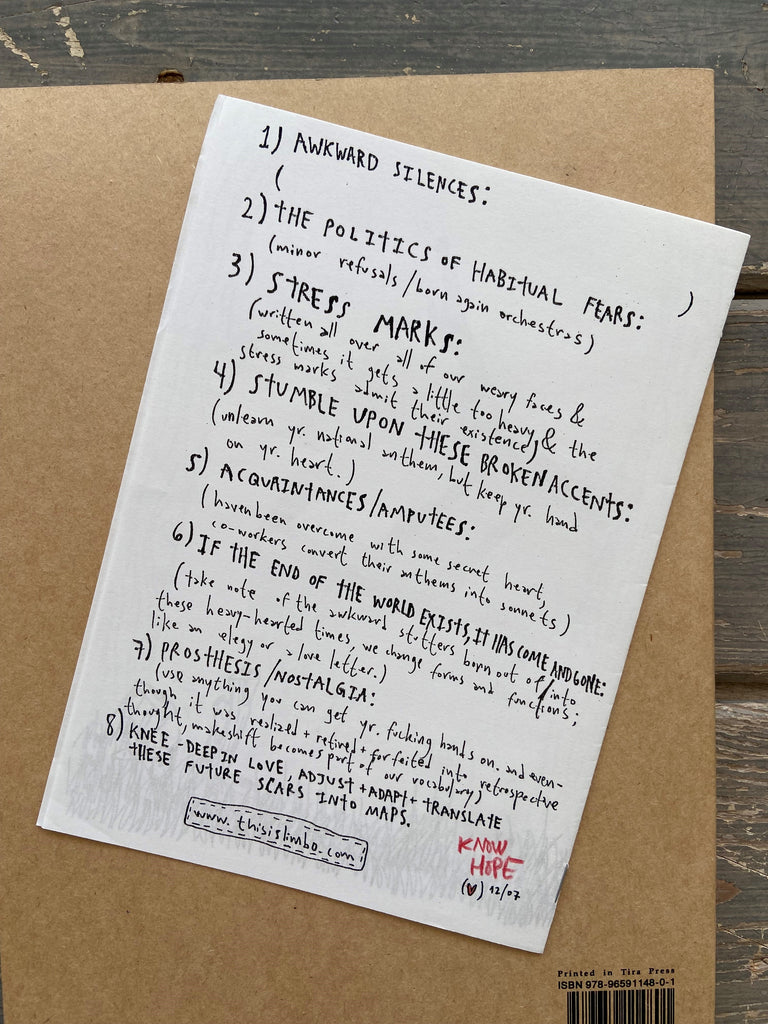 1) AWKWARD SILENCES:
( )
2) THE POLITICS OF HABITUAL FEARS:
(minor refusals/born again orchestras)
3) STRESS MARKS:
(written all over all of our weary faces &
sometimes it gets a little too heavy & the
stress marks admit their existence)
4) STUMBLE UPON THESE BROKEN ACCENTS:
(unlearn yr. national anthem, but keep yr. hand
on yr. heart.)
5) ACQUAINTANCES/AMPUTEES:
(having been overcome with some secret heart,
co-workers convert their anthems into sonnets)
6) IF THE END OF THE WORLD EXISTS, IT HAS COME AND GONE:
(take note of the awkward stutters born out of/into
these heavy-hearted times, we change forms and functions;
like an elegy or a love letter.)
7) PROSTHESIS/NOSTALGIA:
(use anything you can get yr. fucking hands on. and even-
though it was realized + retired + forfeited into retrospective
thought, makeshift becomes part of our vocabulary)
8) KNEE-DEEP IN LOVE, ADJUST + ADAPT + TRANSLATE
THESE FUTURE SCARS INTO MAPS.
www.thisislimbo.com
KNOW
HOPE
(♥) 12/07
Printed in Tira Press
ISBN 978-96591148-0-1